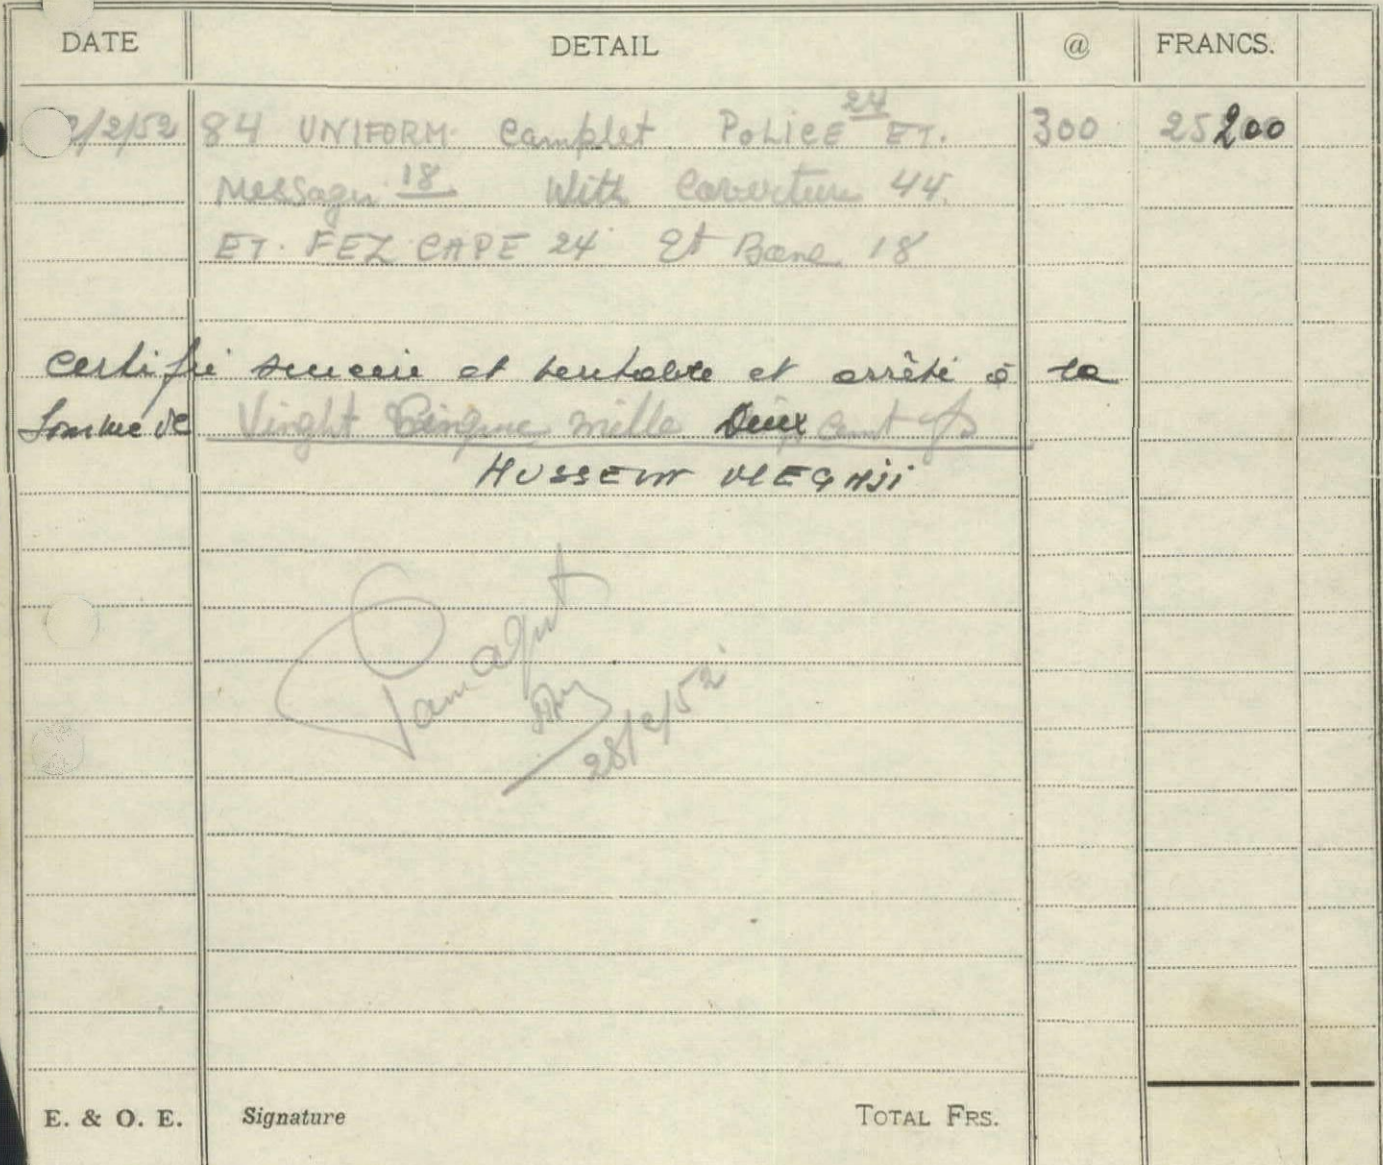 DATE DETAIL @ FRANCS.
2/2/52 84 UNIFORM Camplet POLICE 24 ET. 300 25200
Messager 18 With Couverture 44.
ET. FEZ CAPE 24 Et Bane 18
Certifié sincère et veritable et arrêté à la
Somme de Vinght Cinque mille Deux Cent frs
HUSSEIN MEGHJI
28/2/52
E. & O. E. Signature TOTAL FRS.